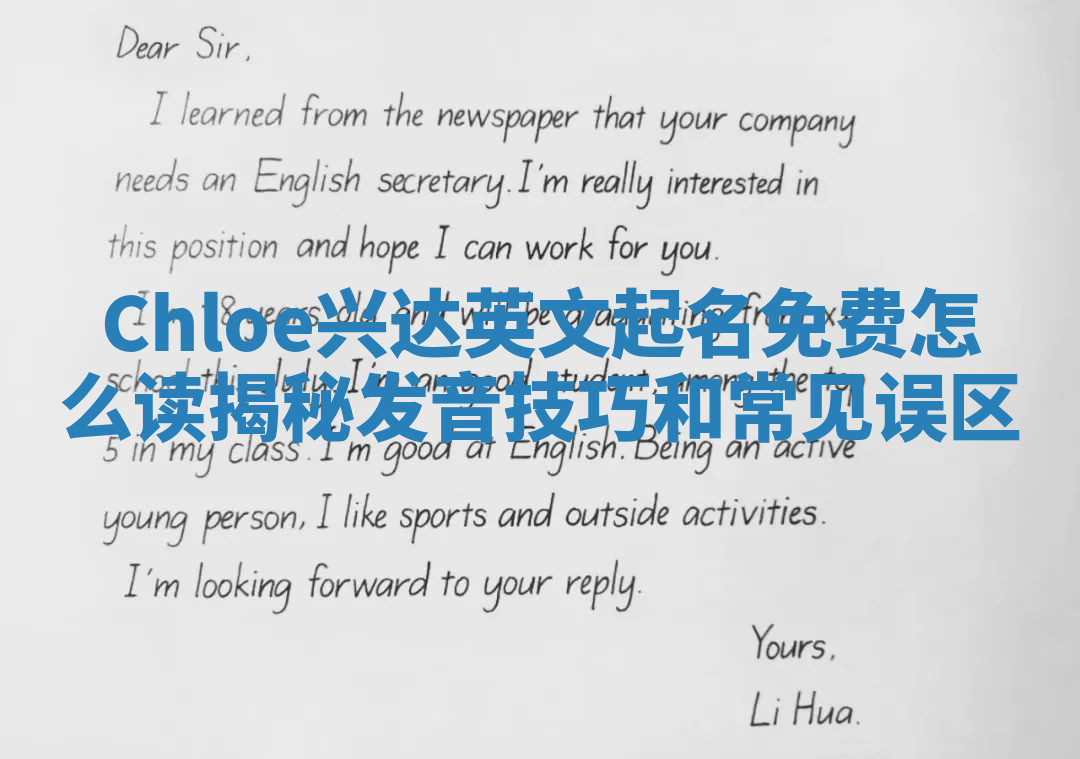 Dear Sir,
I learned from the newspaper that your company
needs an English secretary. I'm really interested in
this position and hope I can work for you.
Chloe兴达英文起名免费怎
I 8 years old and will be graduating from
么读揭秘发音技巧和常见误区
school this July. I'm an good student, among the top
5 in my class. I'm good at English. Being an active
young person, I like sports and outside activities.
I'm looking forward to your reply.
Yours,
Li Hua.